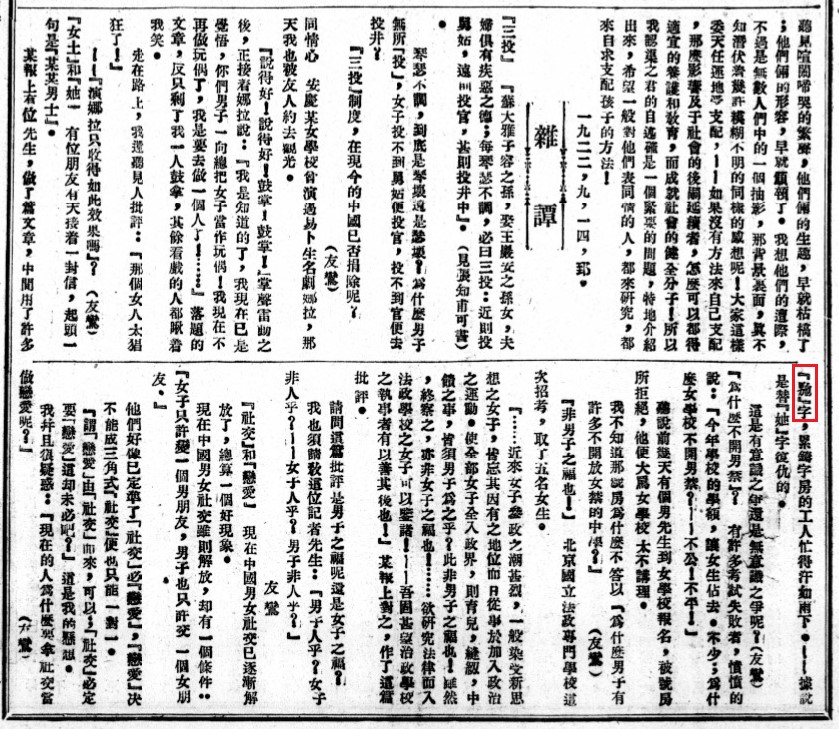 聽見喧鬧啼哭的繁雜，他們倆的生趣，早就枯槁了
；他們倆的形容，早就顦顇了。我想他們的遭際，
不過是無數人們中的一個抽影，那背景裏面，眞不
知潛伏着幾許模糊不明的同樣的感想呢！大家這樣
委天任運地受支配，——如果沒有方法來自己支配
，那麼影響及于社會的後嗣延續者，怎麼可以都得
適宜的養護和敎育，而成就社會的健全分子！所以
我認渠之君的自述確是一個緊要的問題，特地介紹
出來，希望一般對他們表同情的人，都來研究，都
來自求支配孩子的方法！
一九二二，九，一四，郅。
雜譚
『三投』　『蘇大雅子容之孫，娶王嚴安之孫女，夫
婦俱有疾惡之德；每琴瑟不調，必曰三投：近則投
舅姑，遠則投官，甚則投井中。（見張知甫可書）
琴瑟不調，到底是琴壞還是瑟壞？爲什麼男子
無所『投』，女子投不到舅姑便投官，投不到官便去
投井？
『三投』制度，在現今的中國已否捐除呢？
（友鸞）
同情心　安慶某女學校曾演過易卜生名劇娜拉，那
天我也被友人約去觀光。
『說得好！說得好！鼓掌！鼓掌！』掌聲雷動之
後，正接着娜拉說：『我是知道的了，我現在已是
覺悟，你們男子一向總把女子當作玩偶！我現在不
再做玩偶了，我是要去做一個人了！……』落題的
文章，反只剩了我一人鼓掌，其餘看戲的人都瞅着
我笑。
走在路上，我還聽見人批評：『那個女人太猖
狂了！』
——『演娜拉只收得如此效果嗎』？（友鸞）
『女士』和『她』　有位朋友有天接着一封信，起頭一
句是『某某男士』。
某報上有位先生，做了篇文章，中間用了許多
字，累鑄字房的工人忙得汗如雨下。——據說
是替『她』字復仇的。
這是有意識之爭還是無意識之爭呢？（友鸞）
『爲什麼不開男禁』？　有許多考試失敗者，憤憤的
說：『今年學校的學額，讓女生佔去不少；爲什
麼女學校不開男禁？——不公！不平！』
聽說前幾天有個男先生到女學校報名，被號房
所拒絕，他便大罵女學校太不講理。
我不知道那號房爲什麼不答以『爲什麼男子有
許多不開放女禁的中學？』（友鸞）
『非男子之福也！』　北京國立法政專門學校這
次招考，取了五名女生。
『……近來女子參政之潮甚烈，一般染受新思
想之女子，皆忘其固有之地位而日從事於加入政治
之運動。使全部女子全入政界，則育兒，縫紉，中
饋之事，皆須男子爲之乎？此非男子之福也！雖然
，終察之，亦非女子之福也！……欲研究法律而入
法政學校之女子可以鑒諸！——吾國甚望法政學校
之執事者有以善其後也！』某報上對之，作了這篇
批評。
請問這篇批評是男子之福呢還是女子之福？
我也須請敎這位記者先生：『男子人乎？女子
非人乎？——女子人乎？男子非人乎？』
友鸞
『社交』和『戀愛』　現在中國男女社交已逐漸解
放了，總算一個好現象。
現在中國男女社交雖則解放，却有一個條件：
『女子只許變一個男朋友，男子也只許交一個女朋
友。』
他們好像已定準了『社交』必『戀愛』，『戀愛』決
不能成三角式『社交』便也只能一對一。
『謂『戀愛』由『社交』而來，可以；『社交』必定
要『戀愛』這却未必吧？』這是我的懸想。
我幷且很疑惑：『現在的人爲什麼要拿社交當
做戀愛呢？』（友鸞）